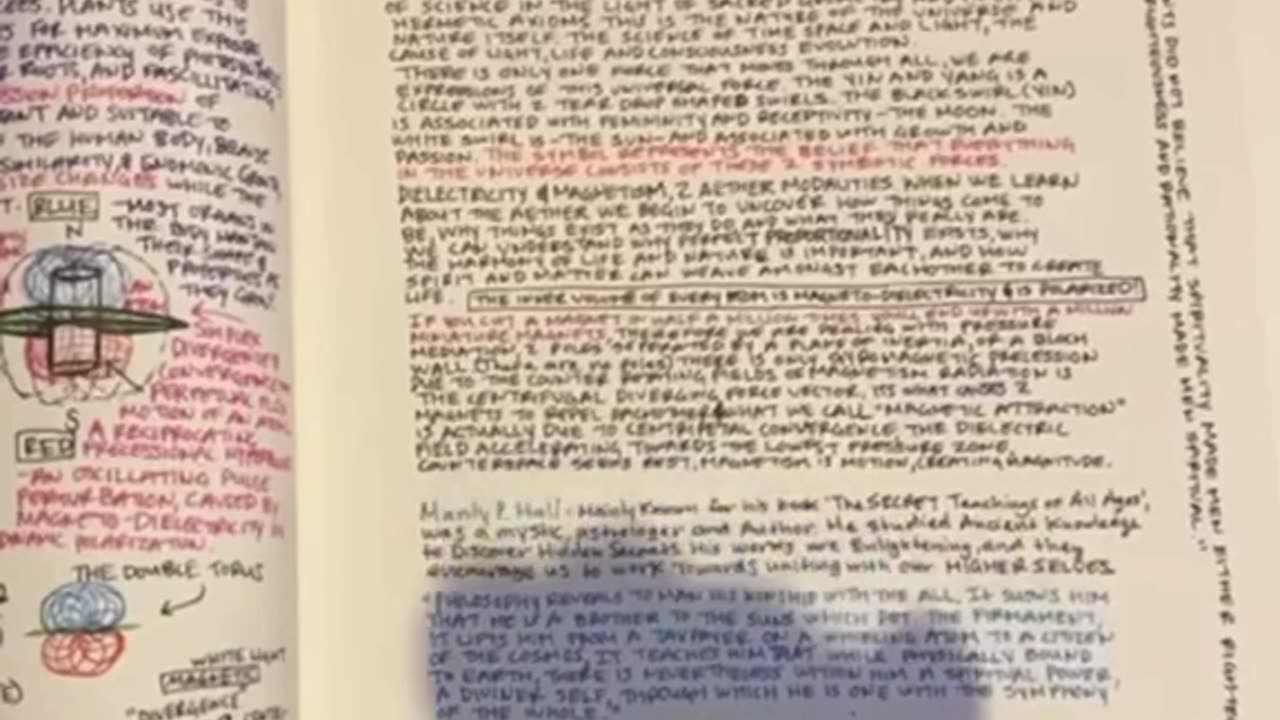 PLANTS USE THIS
FOR MAXIMUM
EFFICIENCY OF
ROOTS, AND FASCILITATING
PROPORTION OF
AND SUITABLE TO
THE HUMAN BODY,
SIMILARITY &
SIZE CHANGES WHILE THE
BLUE - MOST ORGANS IN
THE BODY
N
THEIR
THEY
AN
SIMPLEX
DIVERGENCE
CONVERGENCE
PERPETUAL
MOTION OF AN
S
RED A RECIPROCATING
PRECESSIONAL
- AN OSCILLATING PULSE
PERTURBATION, CAUSED BY
MAGNETO-DIELECTRICITY IN
POLARIZATION.
THE DOUBLE TORUS
WHITE LIGHT
MAGNETS
"DIVERGENCE"
OF SCIENCE IN THE LIGHT OF SACRED
HERMETIC AXIOMS. THIS IS THE NATURE OF THE UNIVERSE AND
NATURE ITSELF. THE SCIENCE OF TIME SPACE AND LIGHT, THE
CAUSE OF LIGHT, LIFE AND CONSCIOUSNESS EVOLUTION.
THERE IS ONLY ONE FORCE THAT MOVES THROUGH ALL, WE ARE
EXPRESSIONS OF THIS UNIVERSAL FORCE. THE YIN AND YANG IS A
CIRCLE WITH 2 TEAR DROP SHAPED SWIRLS. THE BLACK SWIRL (YIN)
IS ASSOCIATED WITH FEMININITY AND RECEPTIVITY - THE MOON. THE
WHITE SWIRL IS - THE SUN - AND ASSOCIATED WITH GROWTH AND
PASSION. THE SYMBOL REPRESENTS THE BELIEF THAT EVERYTHING
IN THE UNIVERSE CONSISTS OF THESE 2 SYMBIOTIC FORCES.
DIELECTRICITY & MAGNETISM, 2 AETHER MODALITIES. WHEN WE LEARN
ABOUT THE AETHER WE BEGIN TO UNCOVER HOW THINGS COME TO
BE, WHY THINGS EXIST AS THEY DO AND WHAT THEY REALLY ARE.
WE CAN UNDERSTAND WHY PERFECT PROPORTIONALITY EXISTS, WHY
THE HARMONY OF LIFE AND NATURE IS IMPORTANT, AND HOW
SPIRIT AND MATTER CAN WEAVE AMONGST EACHOTHER TO CREATE
LIFE. THE INNER VOLUME OF EVERY ATOM IS MAGNETO-DIELECTRICITY & IS POLARIZED!
IF YOU CUT A MAGNET IN HALF A MILLION TIMES YOU'LL END UP WITH A MILLION
MINIATURE MAGNETS, THEREFORE WE ARE DEALING WITH PRESSURE
MEDIATION, 2 POLES SEPERATED BY A PLANE OF INERTIA, OR A BLOCH
WALL (there are no poles) THERE IS ONLY GYROMAGNETIC PRECESSION
DUE TO THE COUNTER ROTATING FIELDS OF MAGNETISM. RADIATION IS
THE CENTRIFUGAL DIVERGING FORCE VECTOR, ITS WHAT CAUSES 2
MAGNETS TO REPEL EACHOTHER & WHAT WE CALL "MAGNETIC ATTRACTION"
IS ACTUALLY DUE TO CENTRIPETAL CONVERGENCE THE DIELECTRIC
FIELD ACCELERATING TOWARDS THE LOWEST PRESSURE ZONE,
COUNTERSPACE SEEKS REST, MAGNETISM IS MOTION, CREATING MAGNITUDE.
Manly P. Hall - Mainly Known for his book 'The SECRET Teachings of All Ages',
was a mystic, astrologer and Author. He studied Ancient Knowledge
to Discover Hidden Secrets. His works are Enlightening, and they
encourage us to work towards uniting with our HIGHER SELVES.
"PHILOSOPHY REVEALS TO MAN HIS KINSHIP WITH THE ALL. IT SHOWS HIM
THAT HE IS A BROTHER TO THE SUNS WHICH DOT THE FIRMAMENT,
IT LIFTS HIM FROM A TAXPAYER ON A WHIRLING ATOM TO A CITIZEN
OF THE COSMOS. IT TEACHES HIM THAT WHILE PHYSICALLY BOUND
TO EARTH, THERE IS NEVERTHELESS WITHIN HIM A SPIRITUAL POWER,
A DIVINER SELF, THROUGH WHICH HE IS ONE WITH THE SYMPHONY
OF THE WHOLE."
DID NOT BELIEVE THAT SPIRITUALITY MADE MEN EITHER
RIGHTEOUSNESS AND RATIONALITY MADE MEN SPIRITUAL."